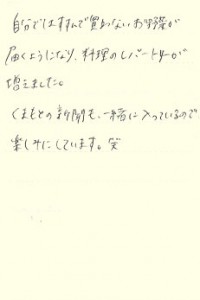 自分ではすすんで買わないお野菜が
届くようになり、料理のレパートリーが
増えました。
くまもとの新聞も、一緒に入っているので
楽しみにしています。笑